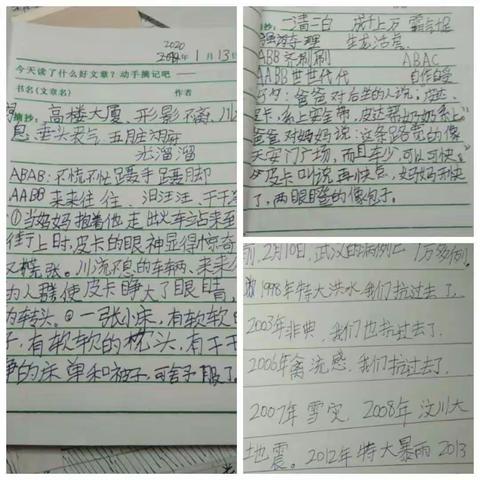 2020
年1月13日
今天读了什么好文章？动手摘记吧
书名(文章名) 作者
摘抄：高楼大厦、形影不离、川
息、垂头丧气、五脏
光溜溜
ABAB：不慌不忙 蹑手蹑脚
AABB 来来往往、泪汪汪、干干
①当妈妈抱着他走出火车站来到
街上时，皮卡的眼神显得惊奇
又慌张。川流不息的车辆、来来
的人群使皮卡睁大了眼睛，
转头。②一张小床，有软软
子，有软软的枕头，有干干
净的床单和被子，可舒服了。
摘抄：一清二白 成千上万 霸气十足
强词夺理 生龙活虎
ABB 齐刷刷 ABAC
AABB 世世代代 自作自受
好句：爸爸对后坐的人说，皮达、
皮卡，系上安全带，皮达帮奶奶系上
爸爸对妈妈说：这条路宽的像
天安门广场，而且车少，可以可快
皮卡叫说再快点，妈妈开快
了，两眼瞪的像包子。
前，2月10日，武汉的病例已1万多例。
1998年特大洪水我们抗过去了，
2003年非典，我们也抗过去了，
2006年禽流感，我们抗过去了，
2007年雪灾，2008年汶川大
地震。2012年特大暴雨2013